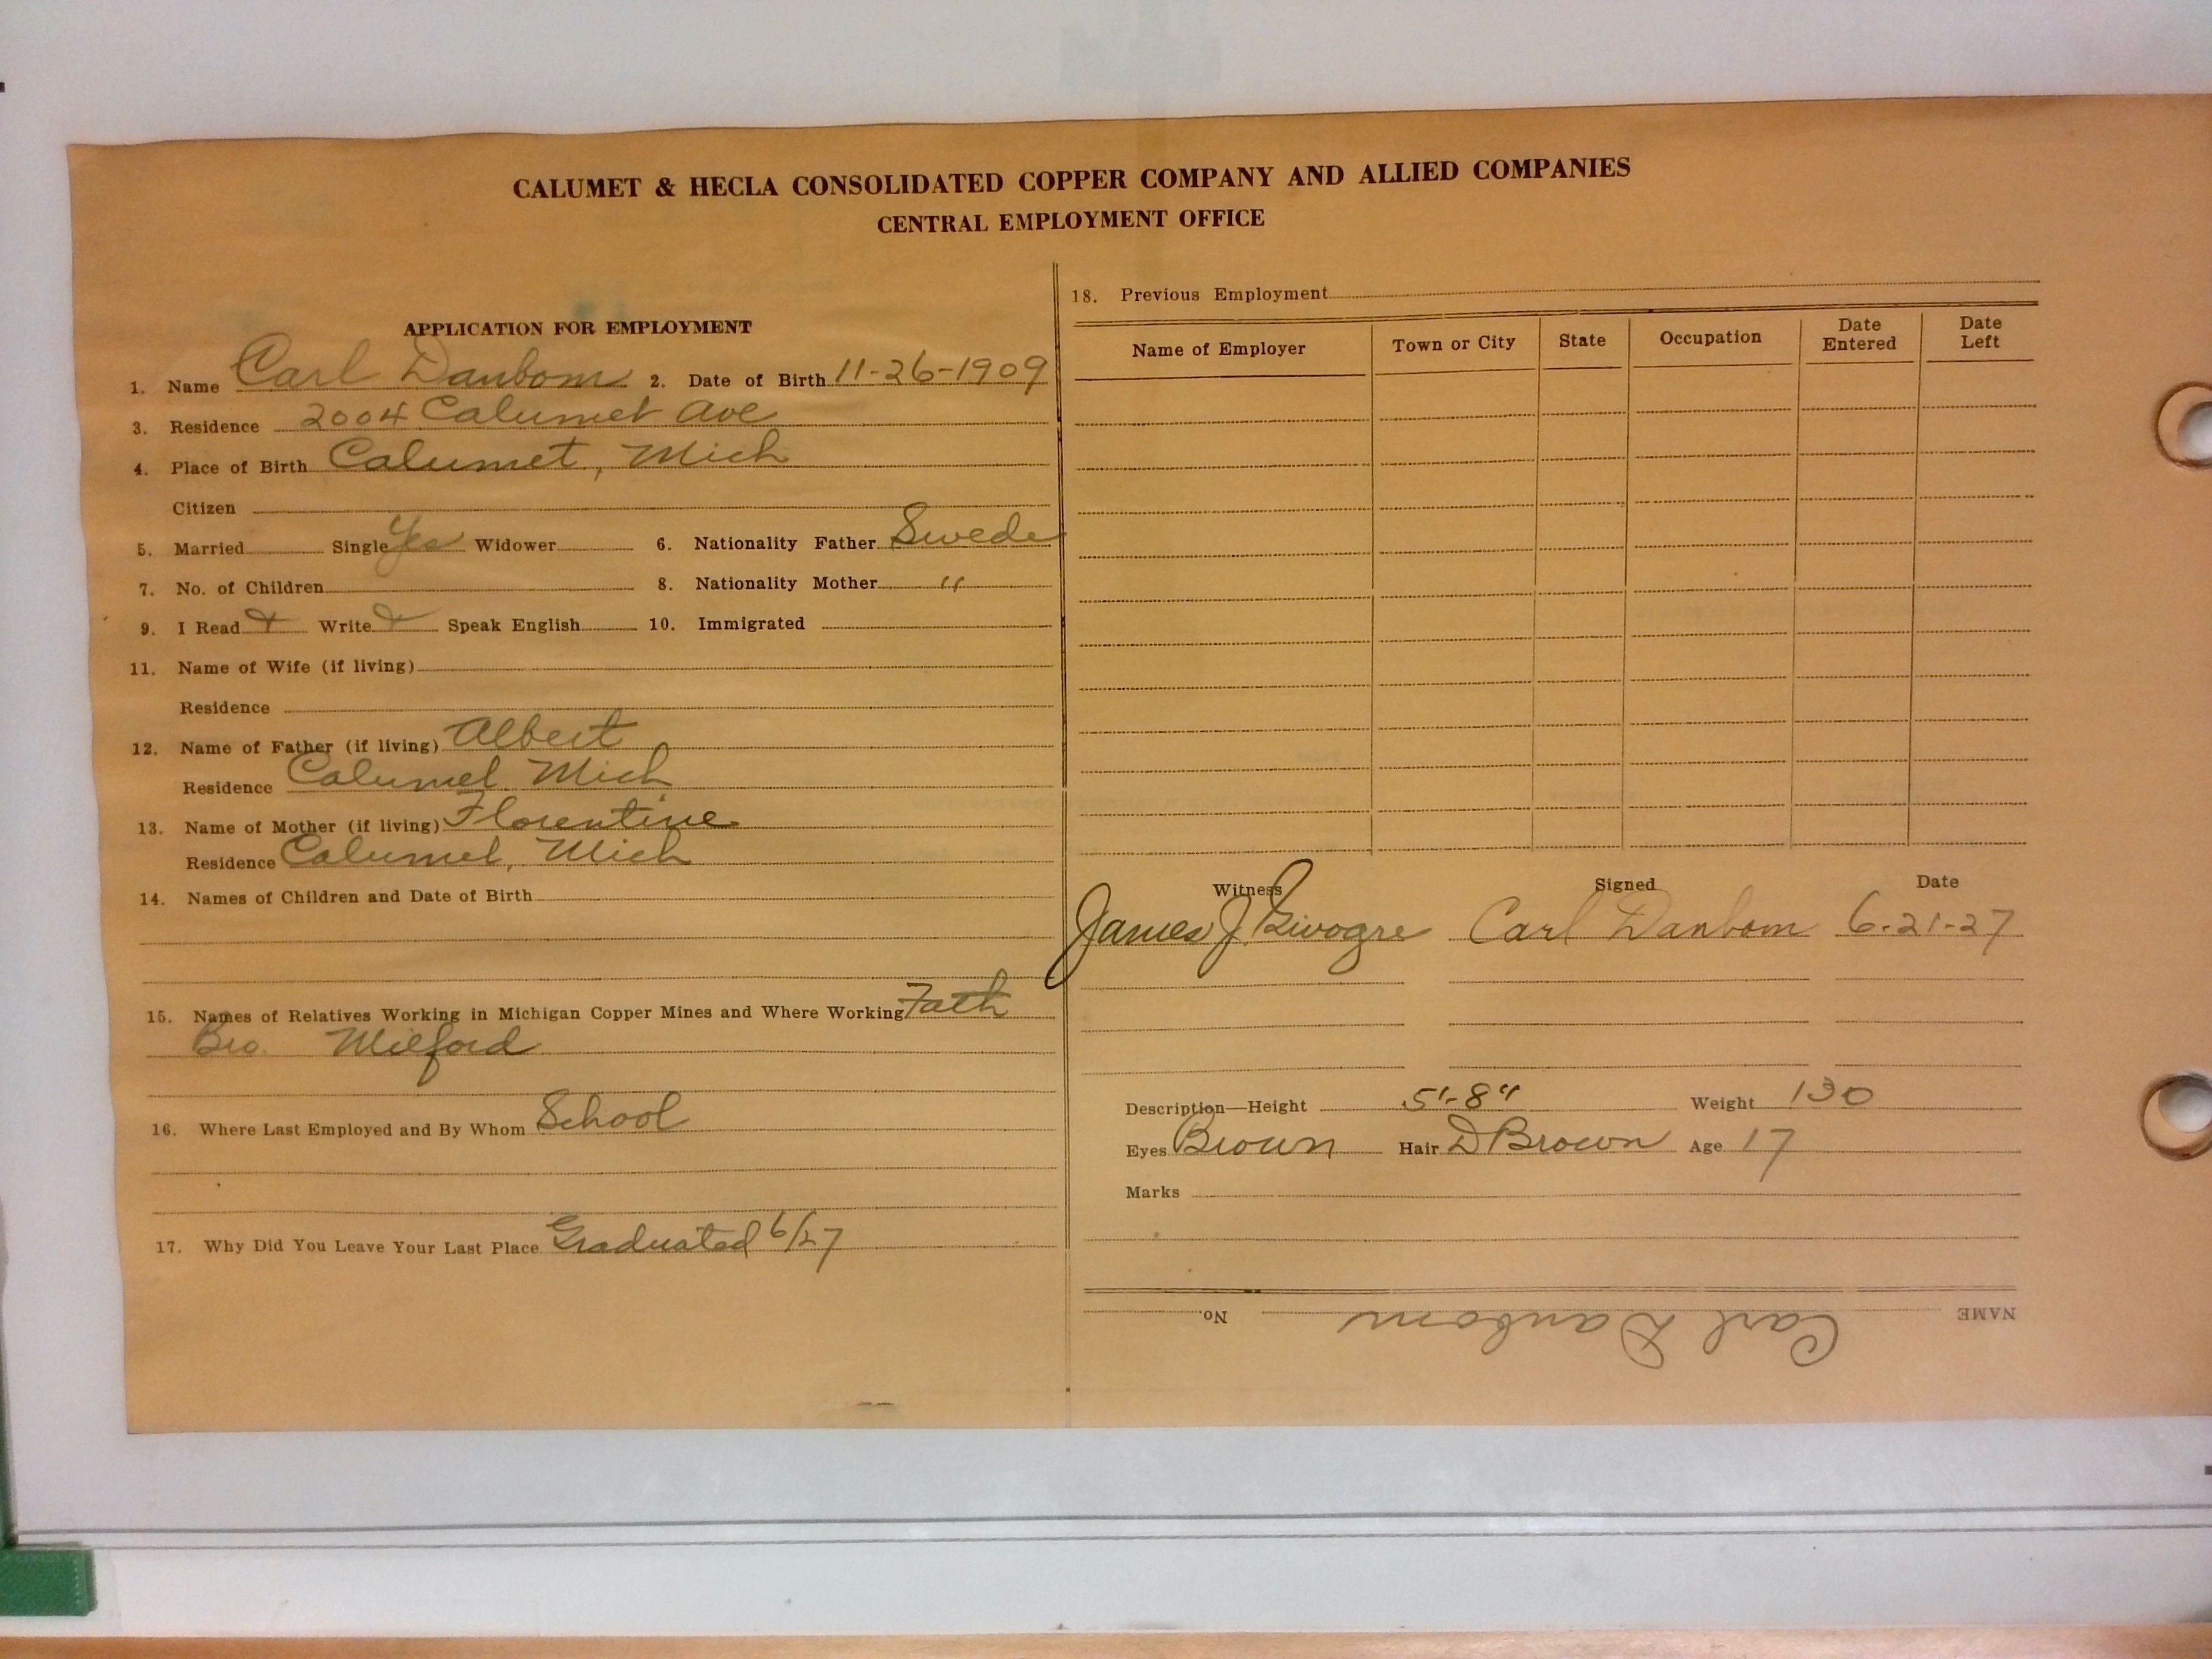 CALUMET & HECLA CONSOLIDATED COPPER COMPANY AND ALLIED COMPANIES
CENTRAL EMPLOYMENT OFFICE
APPLICATION FOR EMPLOYMENT
1. Name Carl Danbom 2. Date of Birth 11-26-1909
3. Residence 2004 Calumet Ave
4. Place of Birth Calumet, Mich
Citizen
5. Married Single Yes Widower 6. Nationality Father Swede
7. No. of Children 8. Nationality Mother "
9. I Read Write Speak English 10. Immigrated
11. Name of Wife (if living)
Residence
12. Name of Father (if living) Albert
Residence Calumet Mich
13. Name of Mother (if living) Florentine
Residence Calumet, Mich
14. Names of Children and Date of Birth
15. Names of Relatives Working in Michigan Copper Mines and Where Working Fath
Bro. Milford
16. Where Last Employed and By Whom School
17. Why Did You Leave Your Last Place Graduated 6/27
18. Previous Employment
Name of Employer Town or City State Occupation Date Entered Date Left
Witness Signed Date
James J. Carl Danbom 6-21-27
Description—Height 5'-8" Weight 130
Eyes Brown Hair D Brown Age 17
Marks
NAME Carl Danbom No.